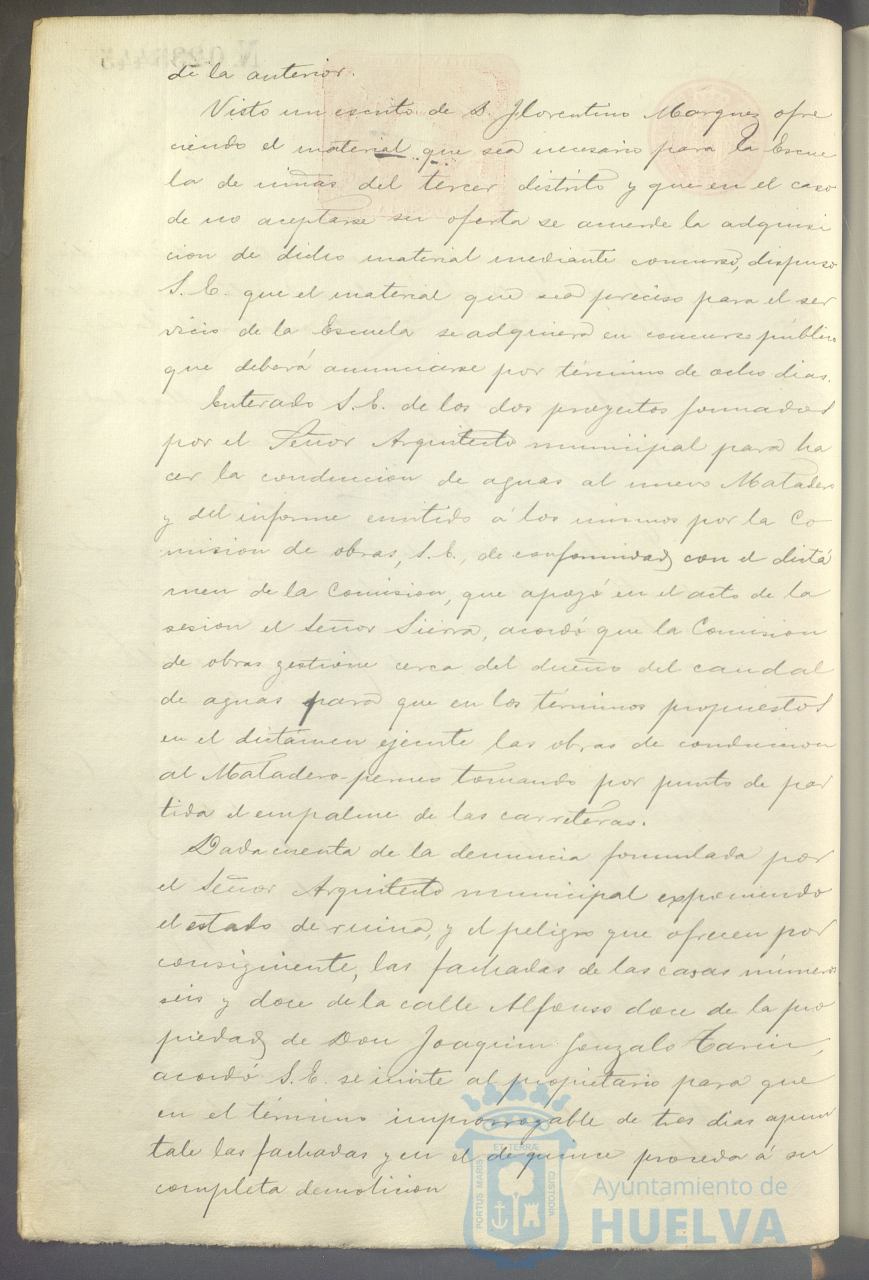 de la anterior.
Visto un escrito de D. Florentino Marquez ofre
ciendo el material que sea necesario para la Escue
la de niñas del tercer distrito y que en el caso
de no aceptarse su oferta se acuerde la adquisi
cion de dicho material mediante concurso, dispuso
S. E. que el material que sea preciso para el ser
vicio de la Escuela se adquiera en concurso público
que deberá anunciarse por término de ocho dias.
Enterado S. E. de los dos proyectos formados
por el Señor Arquitecto municipal para ha
cer la conduccion de aguas al nuevo Matadero
y del informe emitido á los mismos por la Co-
mision de obras, S. E., de conformidad con el dictá
men de la Comision, que apoyó en el acto de la
sesion el Señor Sierra, acordó que la Comision
de obras gestione cerca del dueño del caudal
de aguas para que en los términos propuestos
en el dictámen ejecute las obras de conduccion
al Matadero tomando por punto de par
tida el empalme de las carreteras.
Dada cuenta de la denuncia formulada por
el Señor Arquitecto municipal exponiendo
el estado de ruina, y el peligro que ofrecen por
consiguiente, las fachadas de las casas números
seis y doce de la calle Alfonso doce de la pro
piedad de Don Joaquin Gonzalo Tarin,
acordó S. E. se invite al propietario para que
en el término improrrogable de tres dias apun
tale las fachadas y en el de quince proceda á su
completa demolicion
PORTUS MARIS ET TERRÆ CUSTODIA
Ayuntamiento de
HUELVA